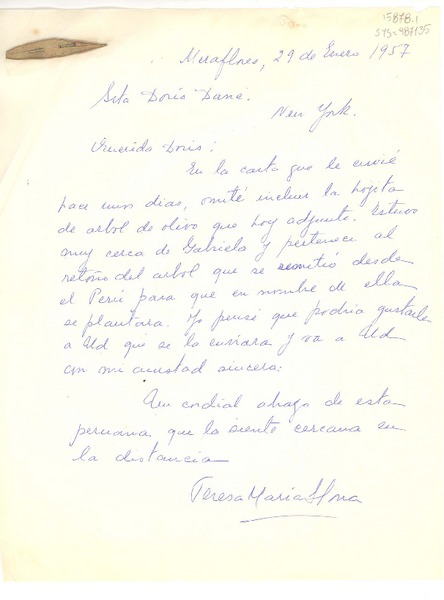 15878.1
sys=987135
Miraflores, 29 de Enero 1957
Srta Doris Dana.
New York.
Querida Doris:
En la carta que le envié
hace unos dias, omité incluir la hojita
de arbol de olivo que hoy adjunto. Estuvo
muy cerca de Gabriela y pertenece al
retoño del arbol que se remitió desde
el Perú para que en nombre de ella
se plantara. Yo pensé que podria gustarle
a Ud que se la enviara y va a Ud
con mi amistad sincera.
Un cordial abrazo de esta
peruana que la siente cercana en
la distancia
Teresa Maria Llona